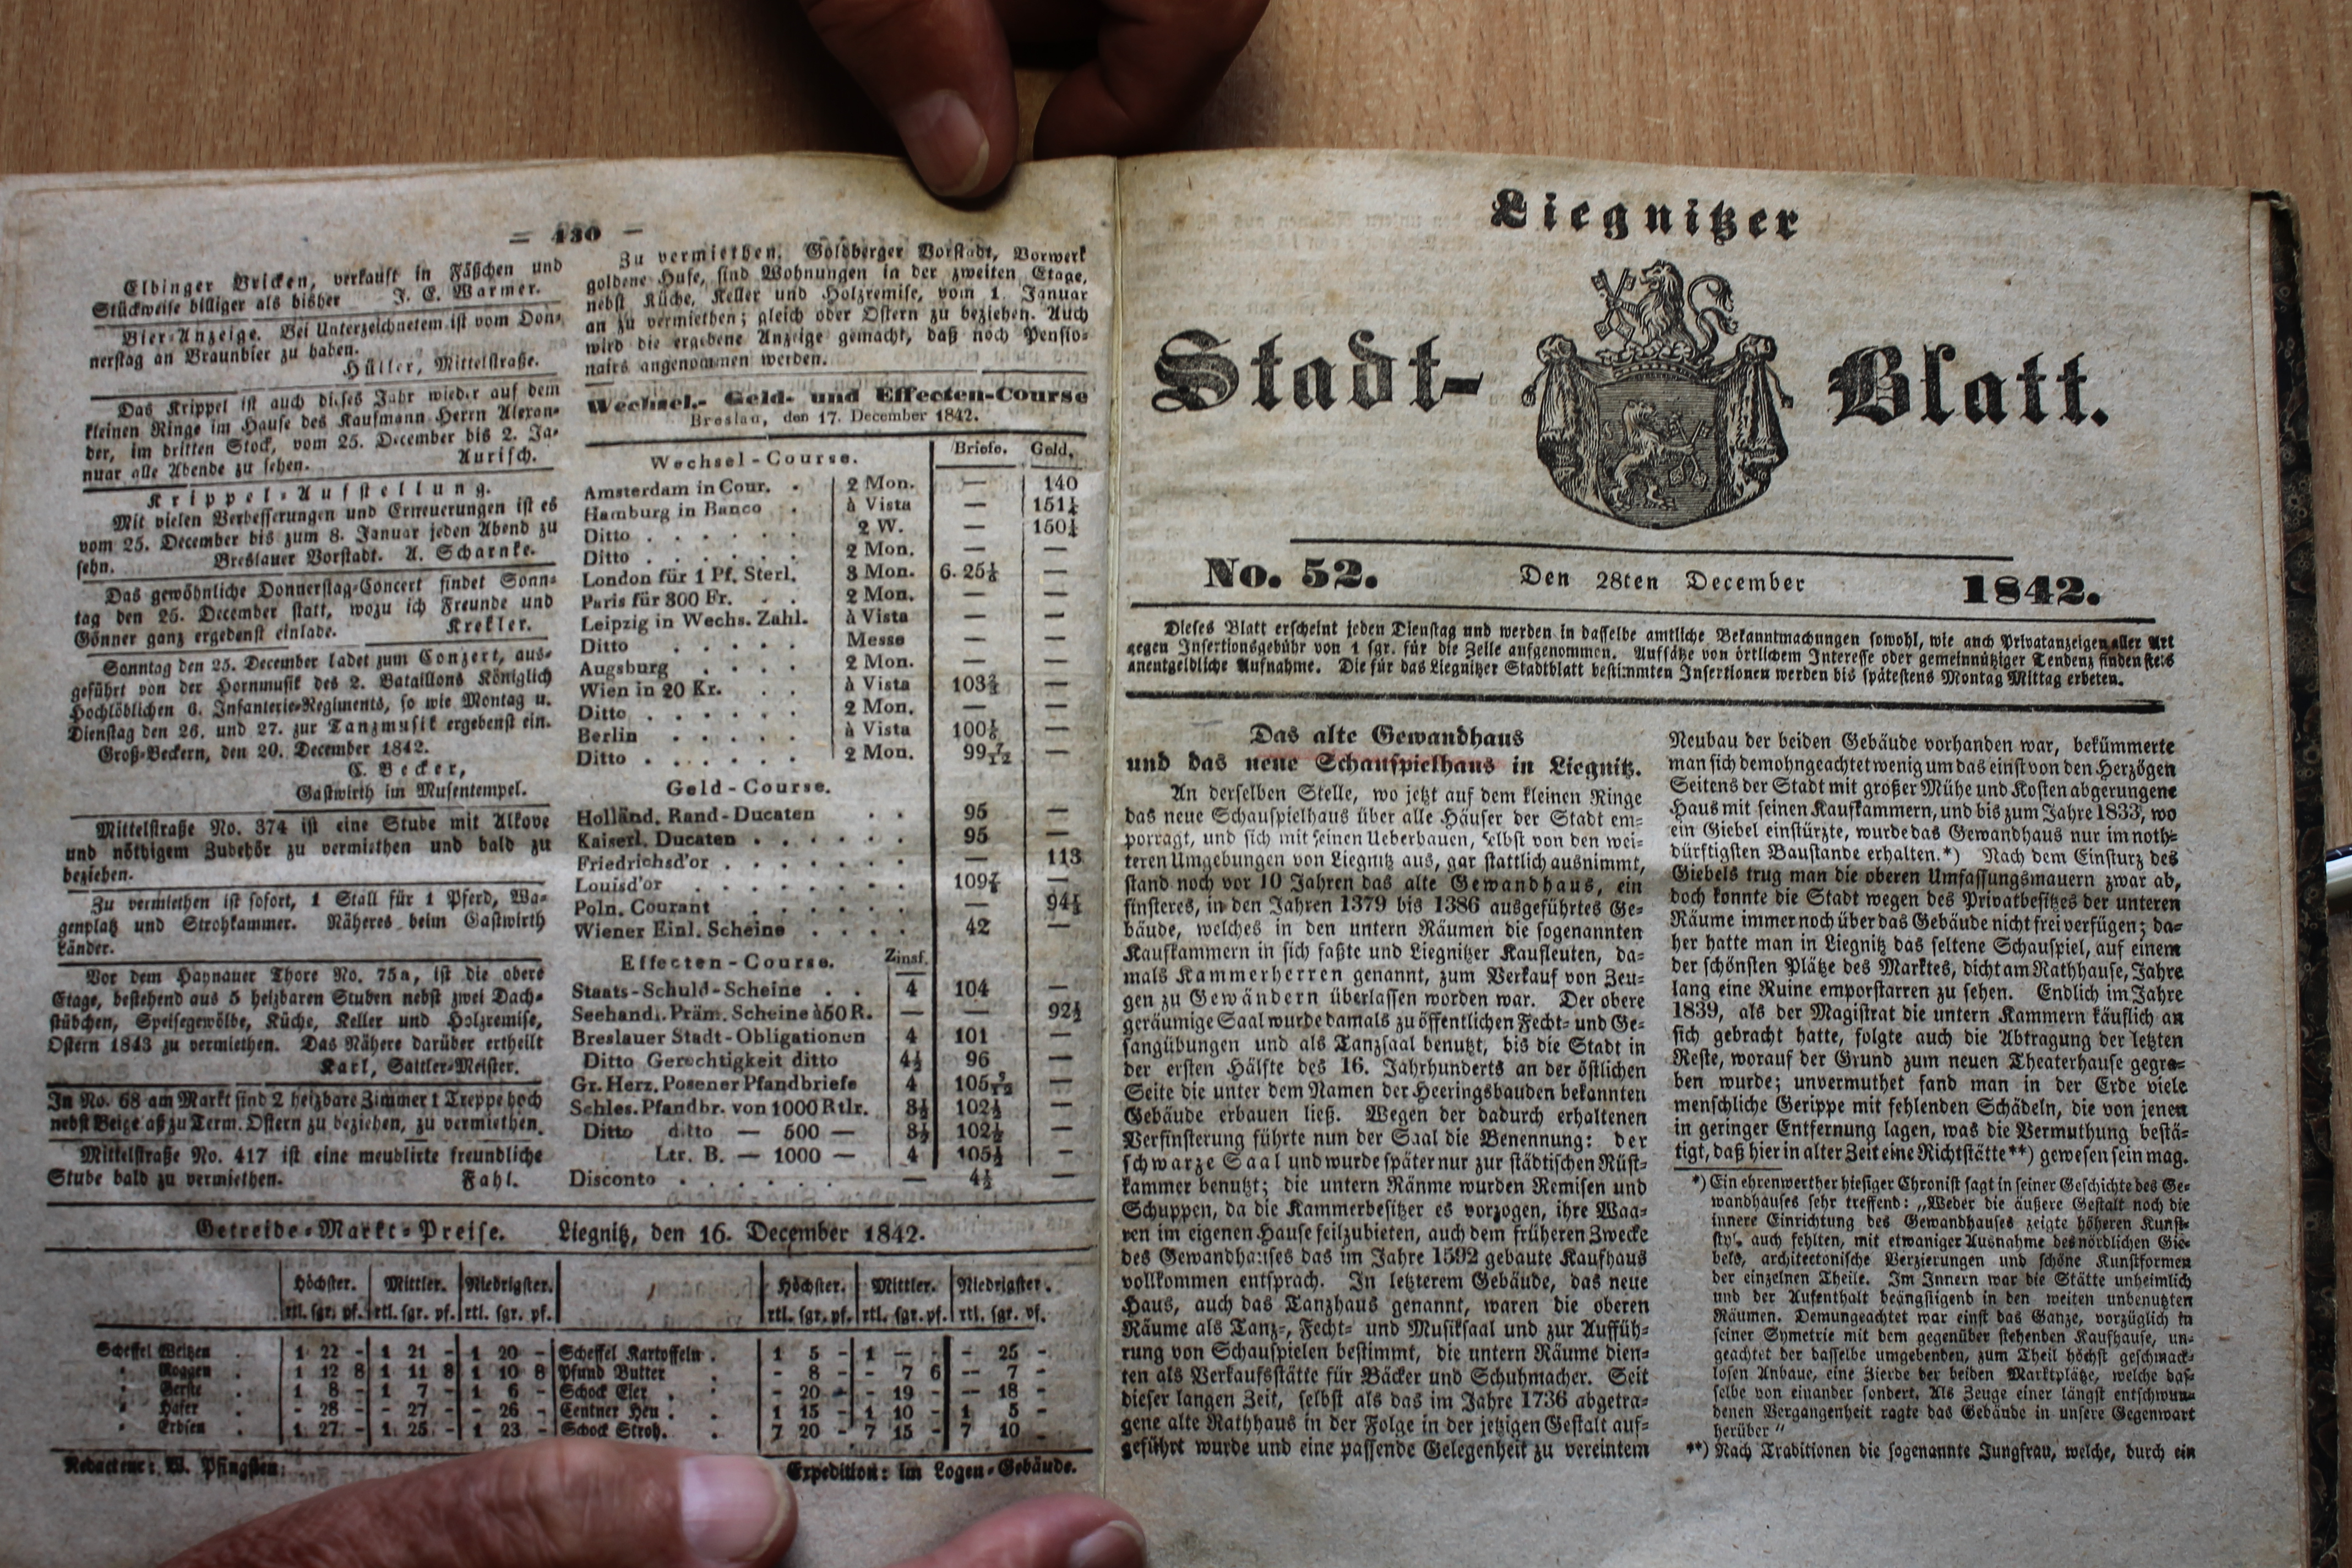 = 430 =
Elbinger Bricken, verkauft in Fäßchen und
Stückweise billiger als bisher J. C. Warmer.
Bier-Anzeige. Bei Unterzeichnetem ist vom Don-
nerstag an Braunbier zu haben.
Hüller, Mittelstraße.
Das Krippel ist auch dieses Jahr wieder auf dem
kleinen Ringe im Hause des Kaufmann Herrn Alexan-
der, im dritten Stock, vom 25. December bis 2. Ja-
nuar alle Abende zu sehen. Aurisch.
Krippel-Aufstellung.
Mit vielen Verbesserungen und Erneuerungen ist es
vom 25. December bis zum 8. Januar jeden Abend zu
sehn. Breslauer Vorstadt. A. Scharnke.
Das gewöhnliche Donnerstag-Concert findet Sonn-
tag den 25. December statt, wozu ich Freunde und
Gönner ganz ergebenst einlade. Krekler.
Sonntag den 25. December ladet zum Conzert, aus-
geführt von der Hornmusik des 2. Bataillons Königlich
Hochlöblichen 6. Infanterie-Regiments, so wie Montag u.
Dienstag den 26. und 27. zur Tanzmusik ergebenst ein.
Groß-Beckern, den 20. December 1842.
C. Becker,
Gastwirth im Musentempel.
Mittelstraße No. 374 ist eine Stube mit Alkove
und nöthigem Zubehör zu vermiethen und bald zu
beziehen.
Zu vermiethen ist sofort, 1 Stall für 1 Pferd, Wa-
genplatz und Strohkammer. Näheres beim Gastwirth
Länder.
Vor dem Haynauer Thore No. 75a, ist die obere
Etage, bestehend aus 5 heizbaren Stuben nebst zwei Dach-
stübchen, Speisegewölbe, Küche, Keller und Holzremise,
Ostern 1843 zu vermiethen. Das Nähere darüber ertheilt
Karl, Sattler-Meister.
In No. 68 am Markt sind 2 heizbare Zimmer 1 Treppe hoch
nebst Beigelaß zu Term. Ostern zu beziehen, zu vermiethen.
Mittelstraße No. 417 ist eine meublirte freundliche
Stube bald zu vermiethen. Fahl.
Zu vermiethen. Goldberger Vorstadt, Vorwerk
goldene Hufe, sind Wohnungen in der zweiten Etage,
nebst Küche, Keller und Holzremise, vom 1. Januar
an zu vermiethen; gleich oder Ostern zu beziehen. Auch
wird die ergebene Anzeige gemacht, daß noch Pensio-
nairs angenommen werden.
Wechsel-, Geld- und Effecten-Course
Breslau, den 17. December 1842.
Wechsel-Course. Briefe. Geld.
Amsterdam in Cour. . 2 Mon. — 140
Hamburg in Banco . à Vista — 151¼
Ditto . . . . . . 2 W. — 150¼
Ditto . . . . . . 2 Mon. — —
London für 1 Pf. Sterl. 3 Mon. 6. 25⅙ —
Paris für 300 Fr. . . 2 Mon. — —
Leipzig in Wechs. Zahl. à Vista — —
Ditto . . . . . Messe — —
Augsburg . . . . . 2 Mon. — —
Wien in 20 Kr. . . à Vista 103⅔ —
Ditto . . . . . . 2 Mon. — —
Berlin . . . . . à Vista 100⅙ —
Ditto . . . . . . 2 Mon. 99 7/12 —
Geld-Course.
Holländ. Rand-Ducaten . . 95 —
Kaiserl. Ducaten . . . . . . 95 —
Friedrichsd'or . . . . . . . — 113
Louisd'or . . . . . . . . 109⅞ —
Poln. Courant . . . . . . — 94½
Wiener Einl. Scheine . . . . 42 —
Effecten-Course. Zinsf.
Staats-Schuld-Scheine . . 4 104 —
Seehandl. Präm. Scheine à 50 R. — — 92½
Breslauer Stadt-Obligationen 4 101 —
Ditto Gerechtigkeit ditto 4½ 96 —
Gr. Herz. Posener Pfandbriefe 4 105 —
Schles. Pfandbr. von 1000 Rtlr. 3½ 102½ —
Ditto ditto — 500 — 3½ 102½ —
Ltr. B. — 1000 — 4 105½ —
Disconto . . . . . . . — 4½ —
Getreide-Markt-Preise. Liegnitz, den 16. December 1842.
Höchster. Mittler. Niedrigster. Höchster. Mittler. Niedrigster.
rtl. sgr. pf. rtl. sgr. pf. rtl. sgr. pf. rtl. sgr. pf. rtl. sgr. pf. rtl. sgr. pf.
Scheffel Weizen . 1 22 - 1 21 - 1 20 - Scheffel Kartoffeln . 1 5 - 1 — - - 25 -
" Roggen . 1 12 8 1 11 8 1 10 8 Pfund Butter . - 8 - - 7 6 — 7 -
" Gerste . 1 8 - 1 7 - 1 6 - Schock Eier . . - 20 - - 19 - — 18 -
" Hafer . - 28 - - 27 - - 26 - Centner Heu . . 1 15 - 1 10 - 1 5 -
" Erbsen . 1 27 - 1 25 - 1 23 - Schock Stroh. . 7 20 - 7 15 - 7 10 -
Redacteur: W. Pfingsten. Expedition: Im Logen-Gebäude.
Liegnitzer
Stadt-Blatt.
No. 52. Den 28ten December 1842.
Dieses Blatt erscheint jeden Dienstag und werden in dasselbe amtliche Bekanntmachungen sowohl, wie auch Privatanzeigen aller Art
gegen Insertionsgebühr von 1 sgr. für die Zeile aufgenommen. Aufsätze von örtlichem Interesse oder gemeinnütziger Tendenz finden stets
unentgeldliche Aufnahme. Die für das Liegnitzer Stadtblatt bestimmten Insertionen werden bis spätestens Montag Mittag erbeten.
Das alte Gewandhaus
und das neue Schauspielhaus in Liegnitz.
An derselben Stelle, wo jetzt auf dem kleinen Ringe
das neue Schauspielhaus über alle Häuser der Stadt em-
porragt, und sich mit seinen Ueberbauen, selbst von den wei-
teren Umgebungen von Liegnitz aus, gar stattlich ausnimmt,
stand noch vor 10 Jahren das alte Gewandhaus, ein
finsteres, in den Jahren 1379 bis 1386 ausgeführtes Ge-
bäude, welches in den untern Räumen die sogenannten
Kaufkammern in sich faßte und Liegnitzer Kaufleuten, da-
mals Kammerherren genannt, zum Verkauf von Zeu-
gen zu Gewändern überlassen worden war. Der obere
geräumige Saal wurde damals zu öffentlichen Fecht- und Ge-
sangübungen und als Tanzsaal benutzt, bis die Stadt in
der ersten Hälfte des 16. Jahrhunderts an der östlichen
Seite die unter dem Namen der Heeringsbauden bekannten
Gebäude erbauen ließ. Wegen der dadurch erhaltenen
Verfinsterung führte nun der Saal die Benennung: der
schwarze Saal und wurde später nur zur städtischen Rüst-
kammer benutzt; die untern Ränme wurden Remisen und
Schuppen, da die Kammerbesitzer es vorzogen, ihre Waa-
ren im eigenen Hause feilzubieten, auch dem früheren Zwecke
des Gewandhauses das im Jahre 1592 gebaute Kaufhaus
vollkommen entsprach. In letzterem Gebäude, das neue
Haus, auch das Tanzhaus genannt, waren die oberen
Räume als Tanz-, Fecht- und Musiksaal und zur Auffüh-
rung von Schauspielen bestimmt, die untern Räume dien-
ten als Verkaufsstätte für Bäcker und Schuhmacher. Seit
dieser langen Zeit, selbst als das im Jahre 1736 abgetra-
gene alte Rathhaus in der Folge in der jetzigen Gestalt auf-
geführt wurde und eine passende Gelegenheit zu vereintem
Neubau der beiden Gebäude vorhanden war, bekümmerte
man sich demohngeachtet wenig um das einst von den Herzögen
Seitens der Stadt mit großer Mühe und Kosten abgerungene
Haus mit seinen Kaufkammern, und bis zum Jahre 1833, wo
ein Giebel einstürzte, wurde das Gewandhaus nur im noth-
dürftigsten Baustande erhalten.*) Nach dem Einsturz des
Giebels trug man die oberen Umfassungsmauern zwar ab,
doch konnte die Stadt wegen des Privatbesitzes der unteren
Räume immer noch über das Gebäude nicht frei verfügen; da-
her hatte man in Liegnitz das seltene Schauspiel, auf einem
der schönsten Plätze des Marktes, dicht am Rathhause, Jahre
lang eine Ruine emporstarren zu sehen. Endlich im Jahre
1839, als der Magistrat die untern Kammern käuflich an
sich gebracht hatte, folgte auch die Abtragung der letzten
Reste, worauf der Grund zum neuen Theaterhause gegra-
ben wurde; unvermuthet fand man in der Erde viele
menschliche Gerippe mit fehlenden Schädeln, die von jenen
in geringer Entfernung lagen, was die Vermuthung bestä-
tigt, daß hier in alter Zeit eine Richtstätte**) gewesen sein mag.
*) Ein ehrenwerther hiesiger Chronist sagt in seiner Geschichte des Ge-
wandhauses sehr treffend: „Weder die äußere Gestalt noch die
innere Einrichtung des Gewandhauses zeigte höheren Kunst-
styl, auch fehlten, mit etwaniger Ausnahme des nördlichen Gie-
bels, architectonische Verzierungen und schöne Kunstformen
der einzelnen Theile. Im Innern war die Stätte unheimlich
und der Aufenthalt beängstigend in den weiten unbenutzten
Räumen. Demungeachtet war einst das Ganze, vorzüglich in
seiner Symetrie mit dem gegenüber stehenden Kaufhause, un-
geachtet der dasselbe umgebenden, zum Theil höchst geschmack-
losen Anbaue, eine Zierde der beiden Marktplätze, welche das-
selbe von einander sondert. Als Zeuge einer längst entschwun-
denen Vergangenheit ragte das Gebäude in unsere Gegenwart
herüber“
**) Nach Traditionen die sogenannte Jungfrau, welche, durch ein